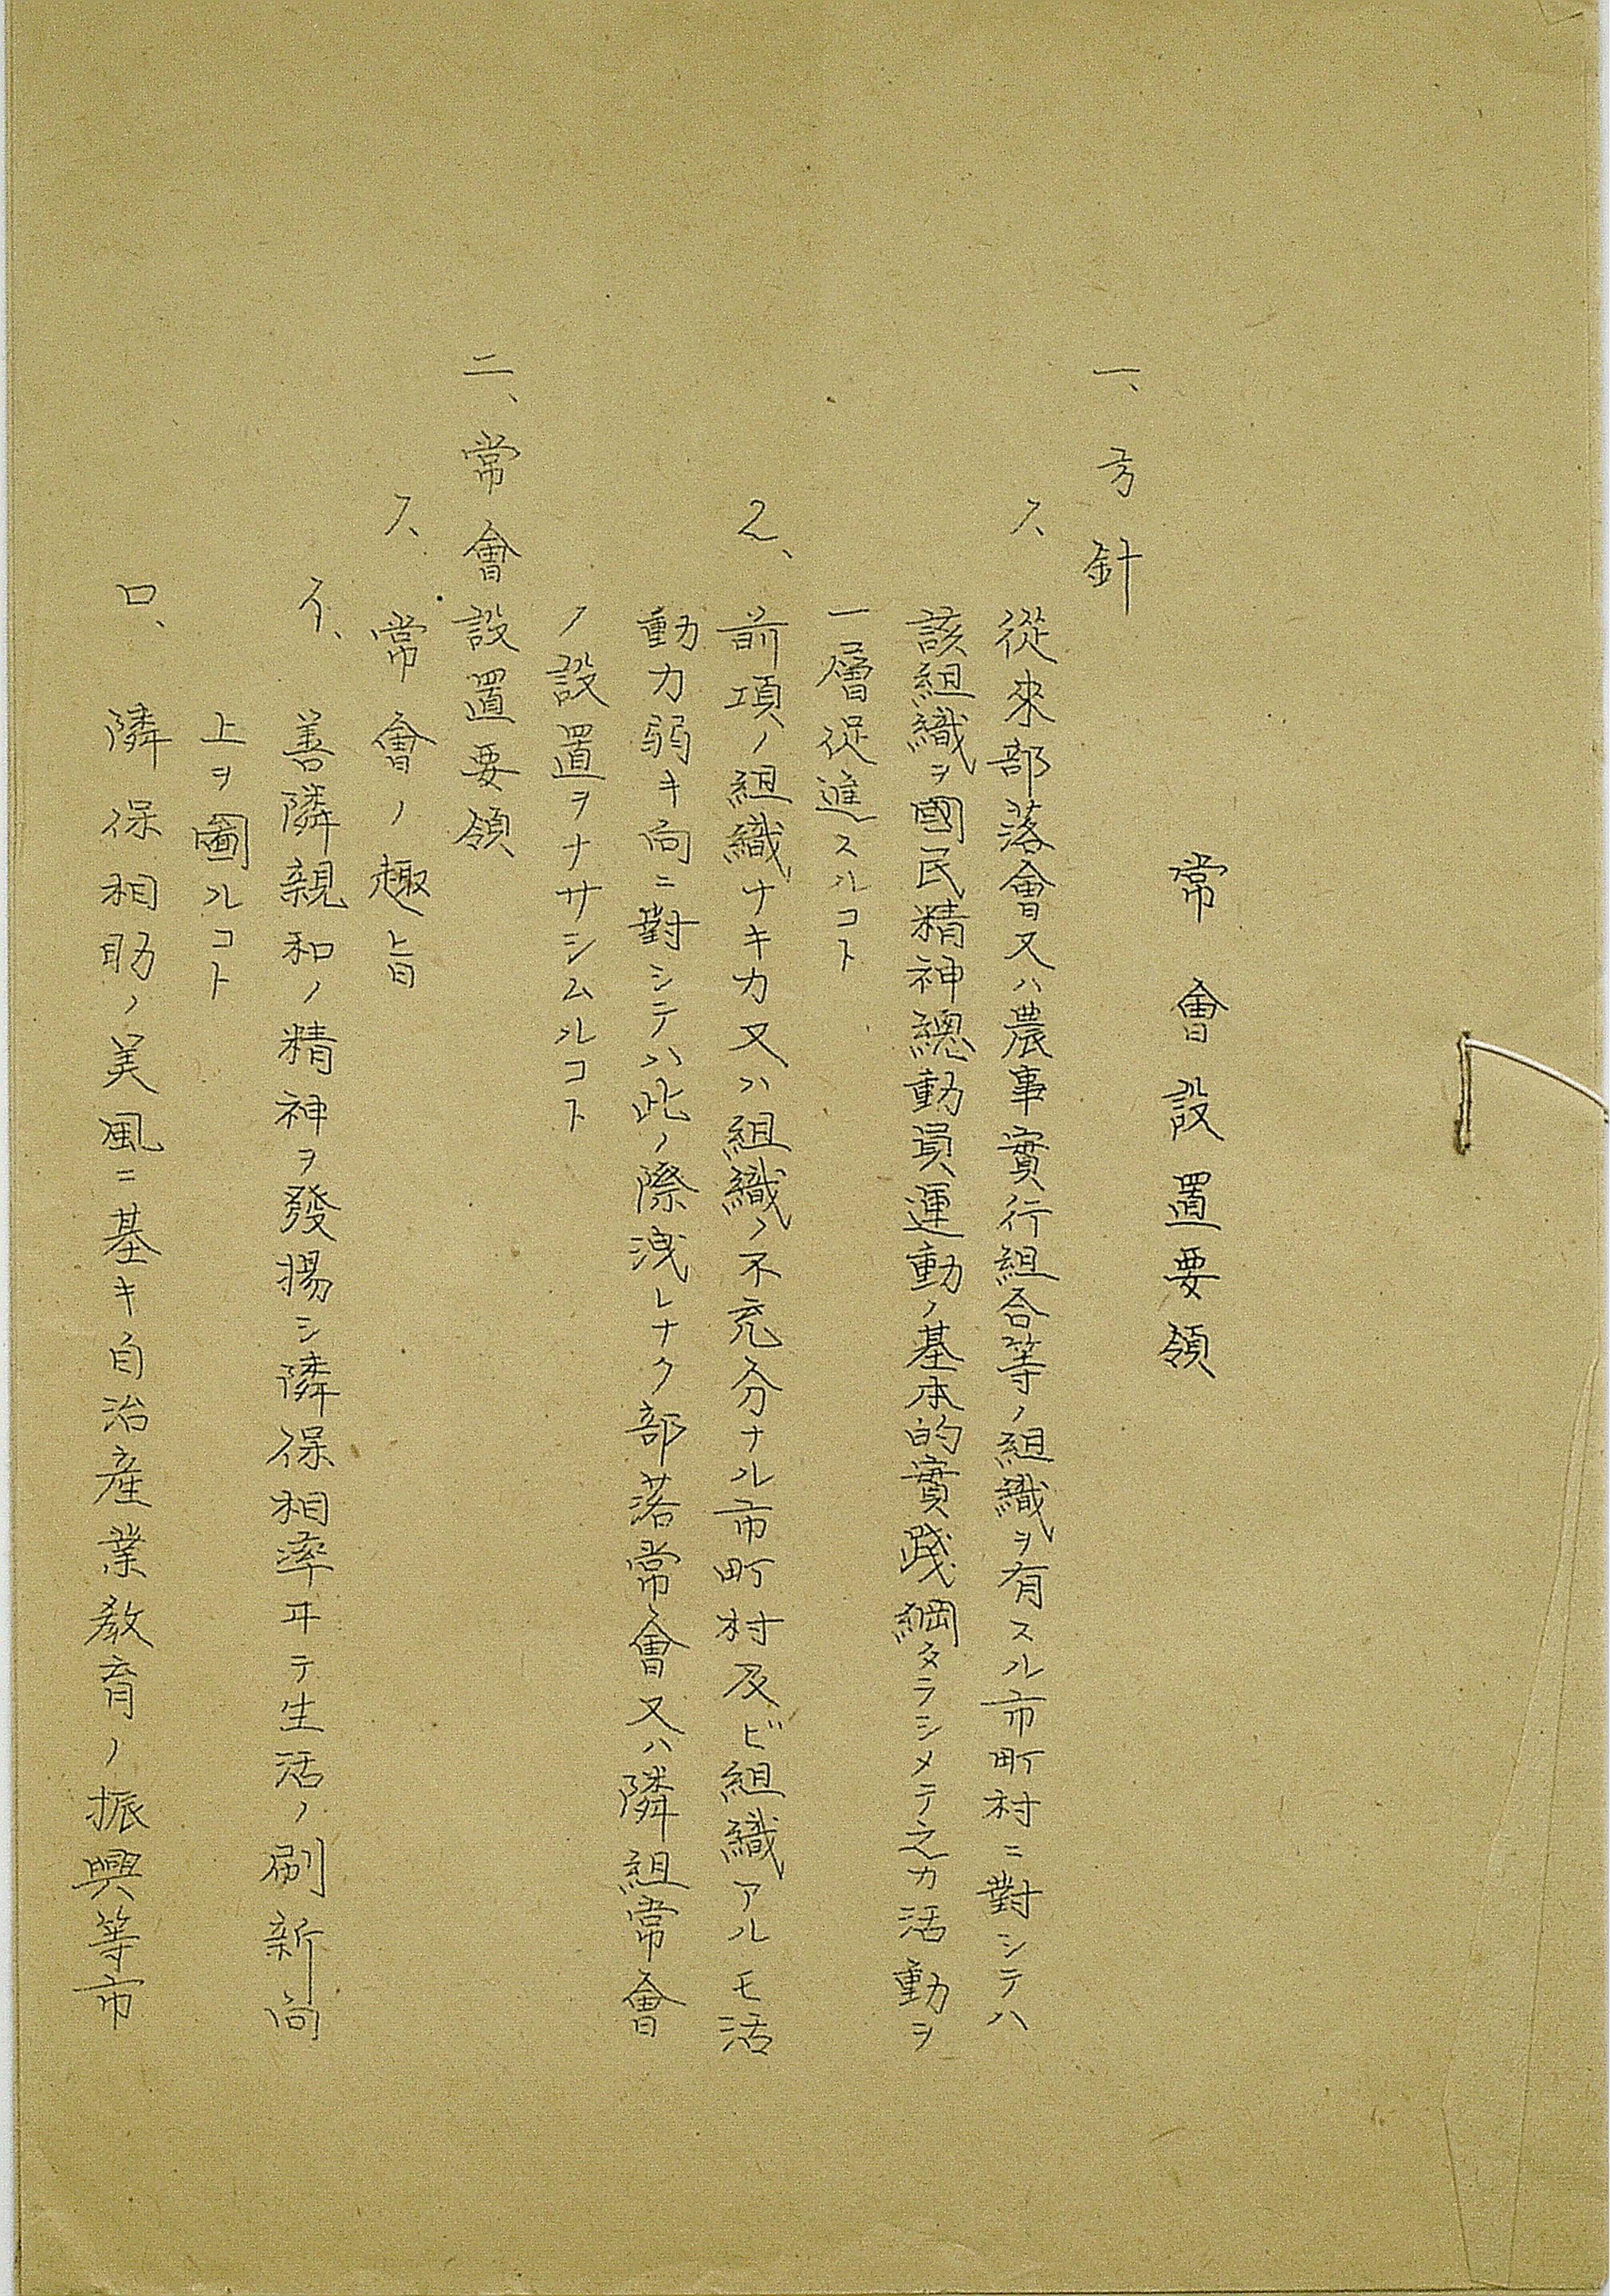 常會設置要領
一、方針
1、從來部落會又ハ農事實行組合等ノ組織ヲ有スル市町村ニ對シテハ
該組織ヲ國民精神總動員運動ノ基本的實踐網タラシメテ之カ活動ヲ
一層促進スルコト
2、前項ノ組織ナキカ又ハ組織ノ不充分ナル市町村及ビ組織アルモ活
動力弱キ向ニ對シテハ此ノ際洩レナク部落常會又ハ隣組常會
ノ設置ヲナサシムルコト
二、常會設置要領
1、常會ノ趣旨
イ、善隣親和ノ精神ヲ發揚シ隣保相率ヰテ生活ノ刷新向
上ヲ圖ルコト
ロ、隣保相助ノ美風ニ基キ自治產業教育ノ振興等市